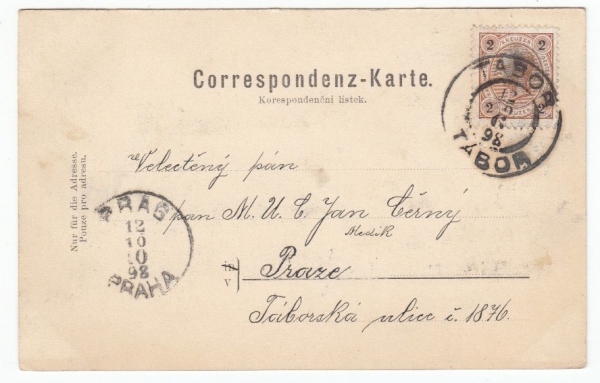 2 KREUZER 2
TÁBOR
12
10
2
98
TÁBOR
Correspondenz-Karte.
Korespondenční lístek.
Nur für die Adresse.
Pouze pro adresu.
Velectěný pán
pan M. U. C. Jan Černý
Medik
PRAG
12
10
10
98
PRAHA
in
v
Praze
Táborská ulice č. 1876.